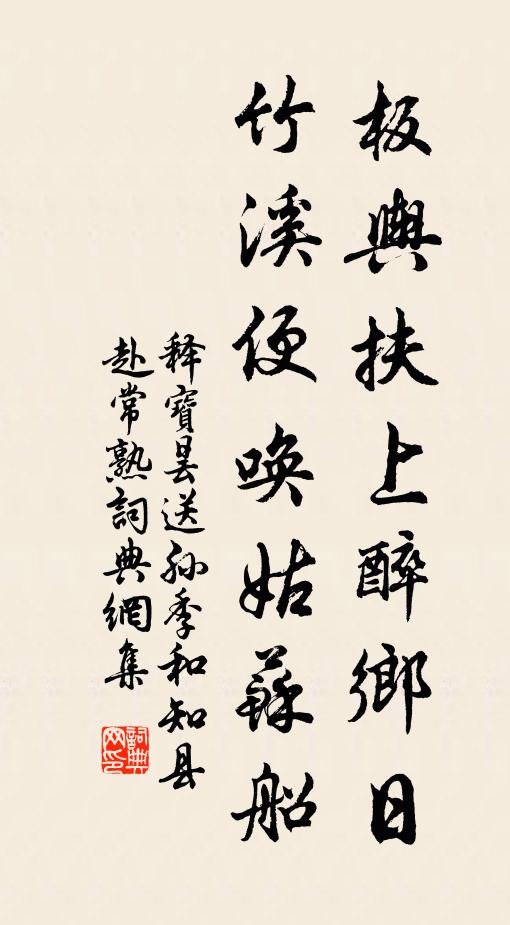 板輿扶上醉鄉日
竹溪便喚姑蘇船
释寶昙送孙季和知县
赴常熟詞典網集
詞典
网印